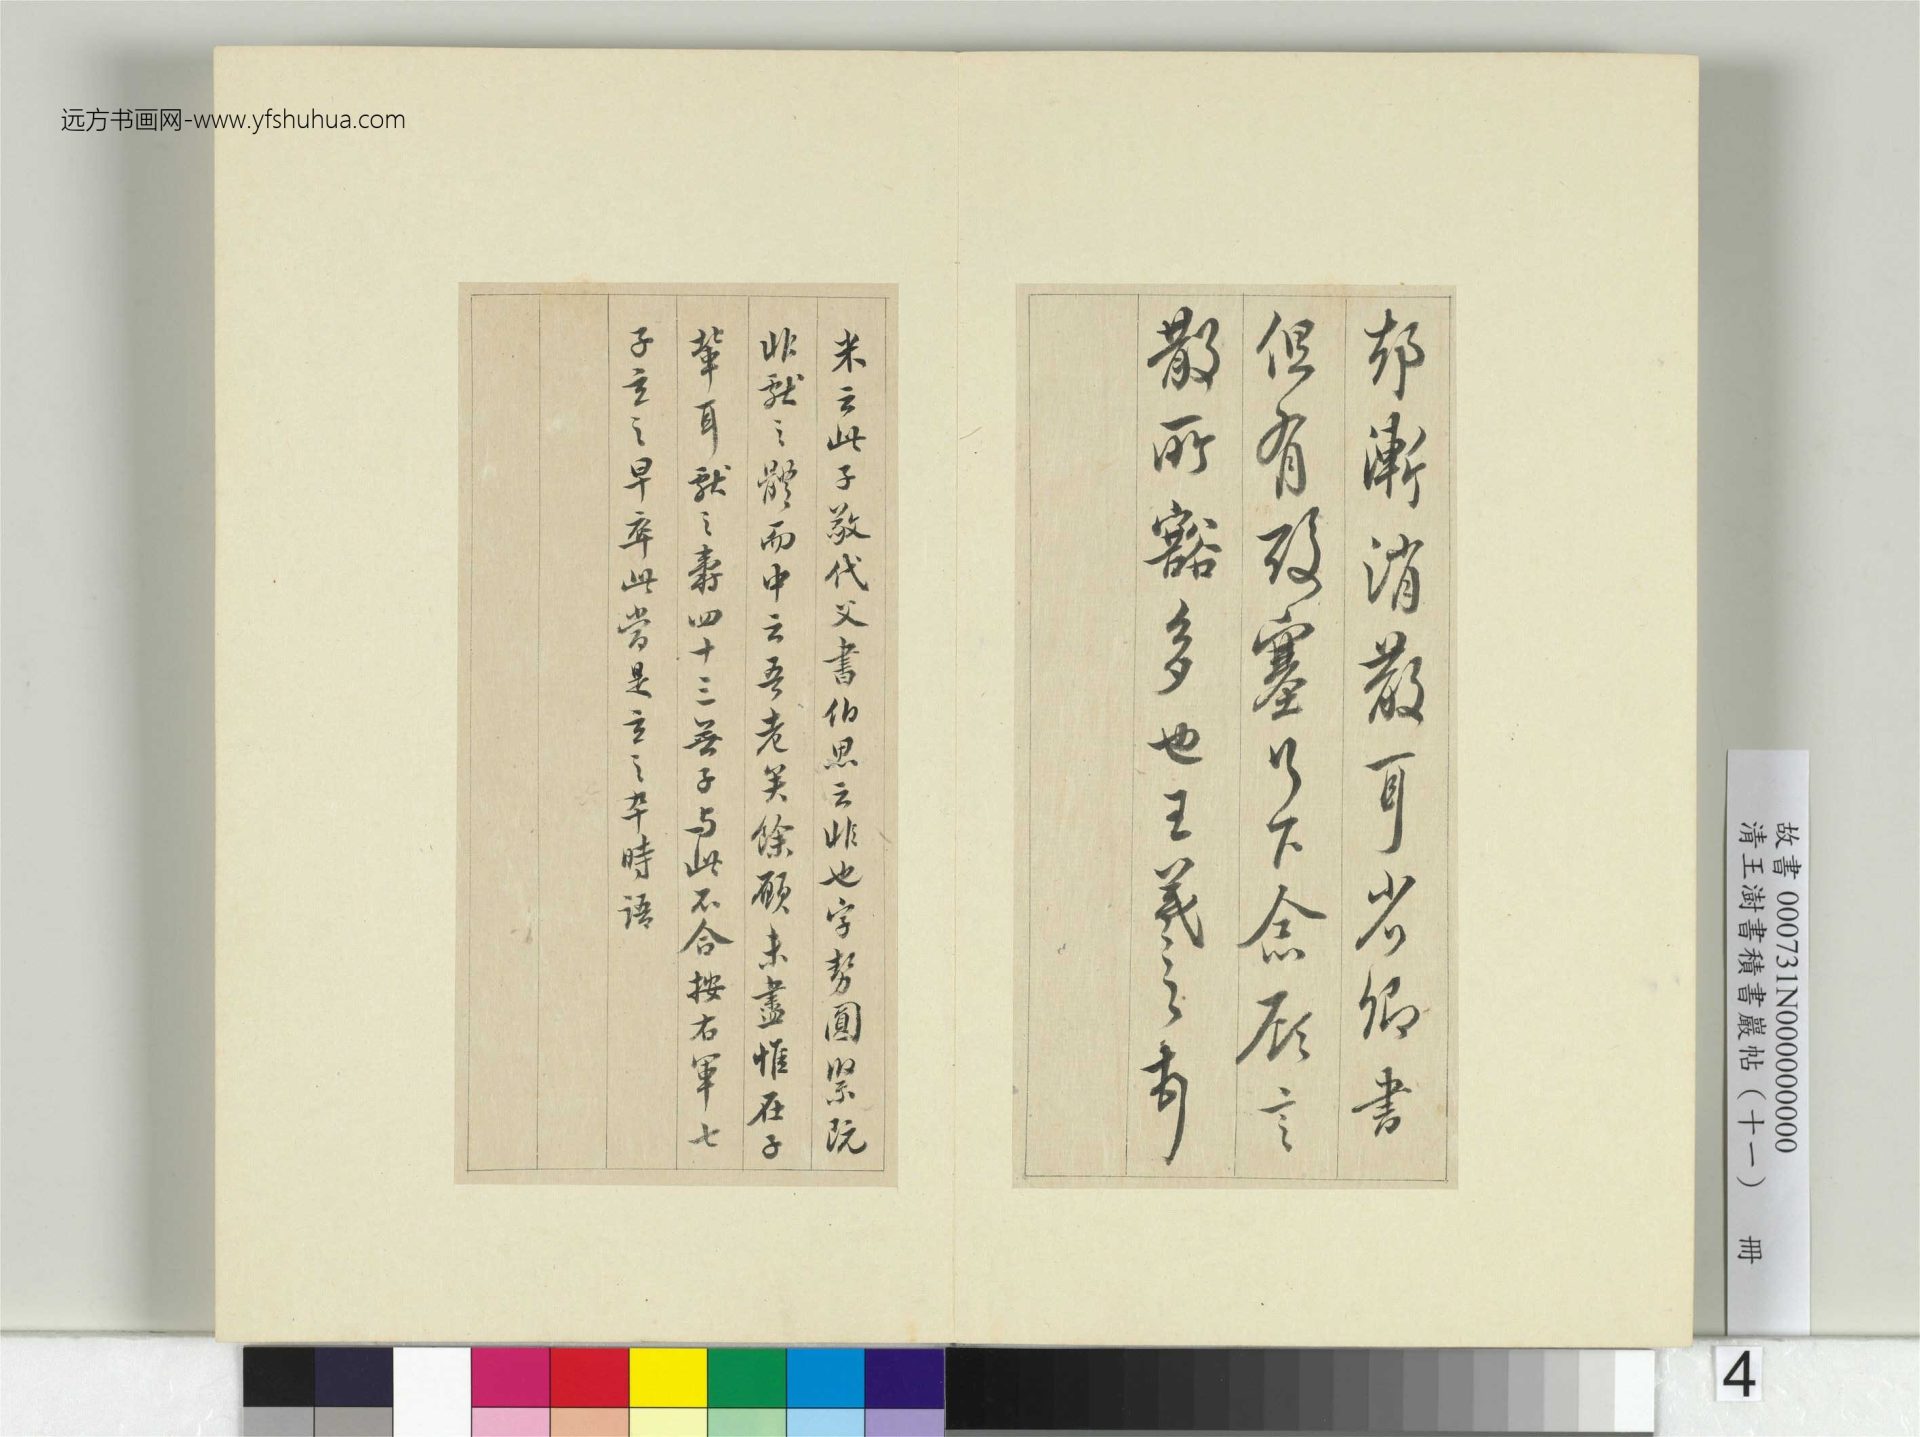 远方书画网-www.yfshuhua.com
却漸消散耳省卿書
但有酸塞足下念顧言
散所豁多也王羲之頓
米云此子敬代父書伯思云非也字勢圓緊阮
非獻之體而中云吾老矣餘願未盡惟在子
輩耳獻之壽四十三無子與此不合按右軍七
子玄之早卒此當是玄之卒時語
故書 000731N000000000
清王澍書積書巖帖（十一） 冊
4